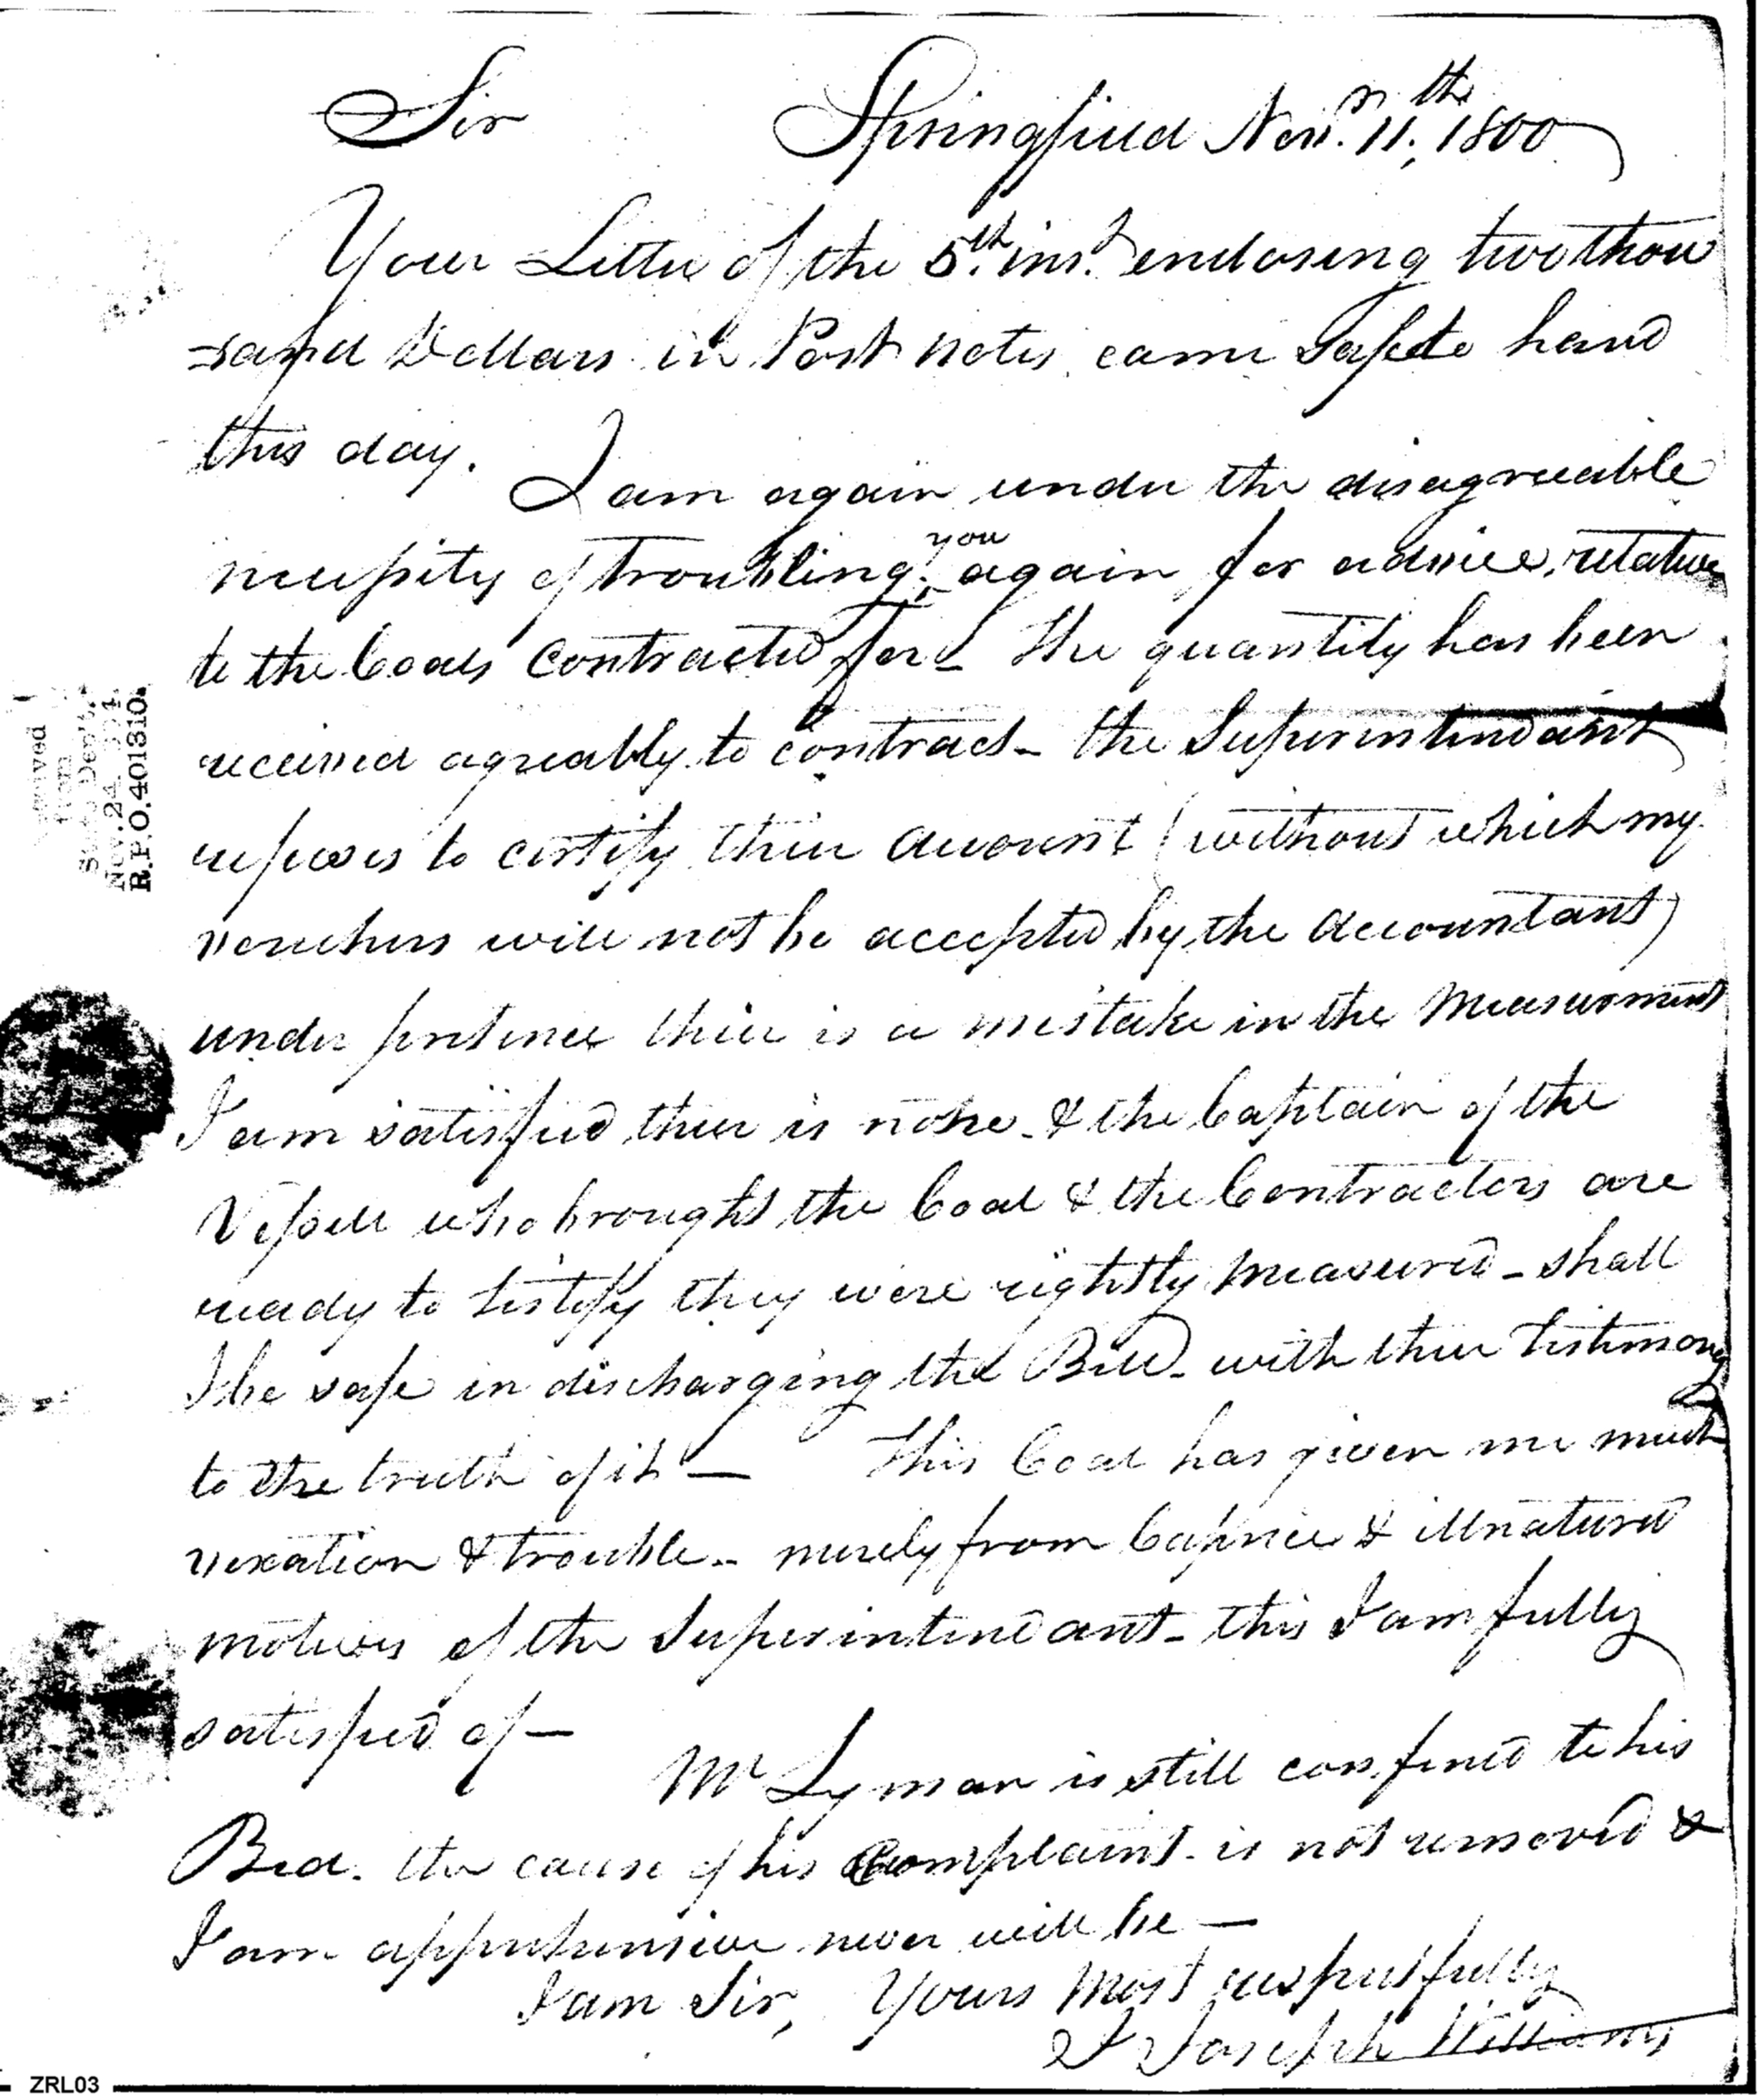 Sir Springfield Novr. 11th, 1800
Your Letter of the 5th. inst. enclosing two thou
-sand Dollars in Post notes came safe to hand
this day.
I am again under the disagreeable
necessity of troubling you again for advice, relative
to the Coals contracted for - The quantity has been
received agreably to contract - the Superintendant
refuses to certify their account (without which my
vouchers will not be accepted by the Accountant)
under pretence their is a mistake in the Measurment
I am satisfied their is none - & the Captain of the
Vessell who brought the Coal & the Contractors are
ready to testify they were rightly measured - shall
I be safe in discharging the Bill - with their testimony
to the truth of it — This Coal has given me much
vexation & trouble - merely from Caprice & illnatured
motives of the Superintendant - this I am fully
satisfied of —
Mr Lyman is still confined to his
Bed. the cause of his Complaint - is not removed &
I am apprehensive never will be —
I am Sir, Yours Most respectfully
Joseph Williams
Received
from
State Dep't.
Nov. 24
R.P.O. 401310.
ZRL03